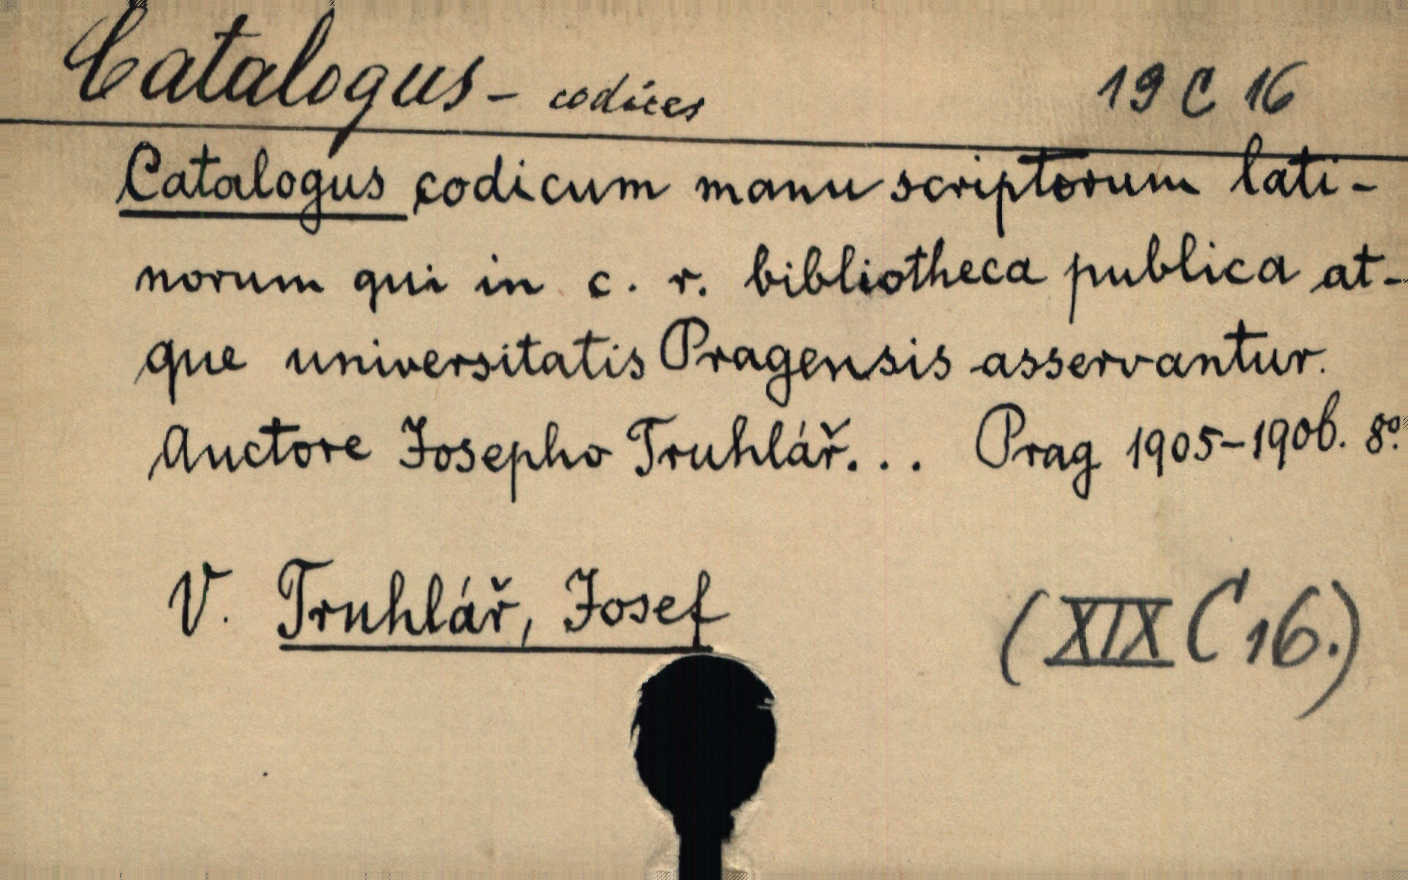 Catalogus - codices 19 C 16
Catalogus codicum manu scriptorum lati-
norum qui in c. r. bibliotheca publica at-
que universitatis Pragensis asservantur.
Auctore Josepho Truhlář... Prag 1905-1906. 8º.
V. Truhlář, Josef
(XIX C 16.)